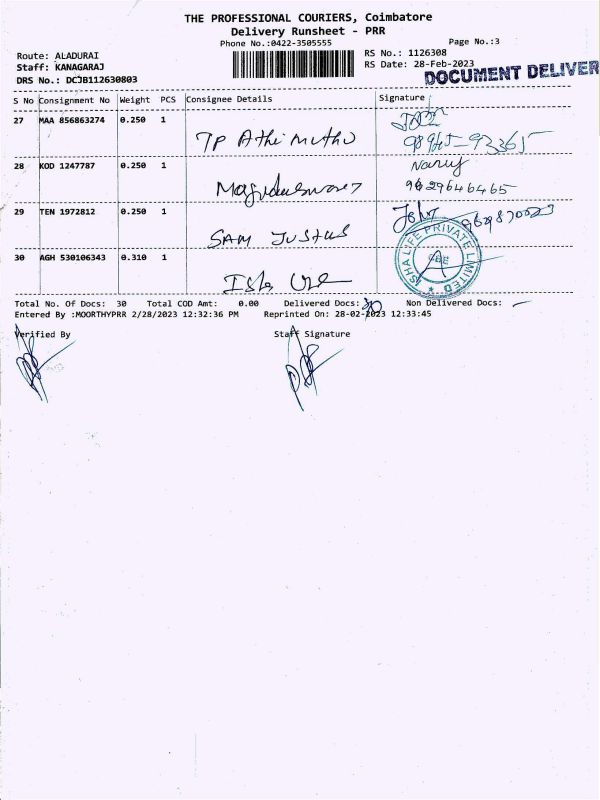 THE PROFESSIONAL COURIERS, Coimbatore
Delivery Runsheet - PRR
Phone No.:0422-3505555
Page No.:3
Route: ALADURAI
Staff: KANAGARAJ
DRS No.: DCJB112630803
RS No.: 1126308
RS Date: 28-Feb-2023
DOCUMENT DELIVER
S No Consignment No Weight PCS Consignee Details Signature
27 MAA 856863274 0.250 1
TP Athi muthu
28 KOD 1247787 0.250 1
9629646465
29 TEN 1972812 0.250 1
SAM JUSTUS
John
30 AGH 530106343 0.310 1
Isha Life
ISHA LIFE PRIVATE LIMITED
CBE
Total No. Of Docs: 30 Total COD Amt: 0.00 Delivered Docs: 30 Non Delivered Docs: -
Entered By :MOORTHYPRR 2/28/2023 12:32:36 PM Reprinted On: 28-02-2023 12:33:45
Verified By Staff Signature